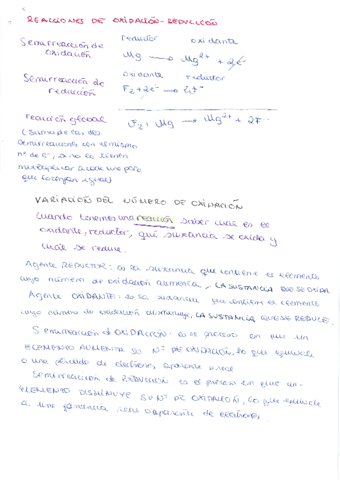 REACCIONES DE OXIDACIÓN-REDUCCIÓN
reductor oxidante
Semirreacción de oxidación Mg → Mg²⁺ + 2e⁻
oxidante reductor
Semirreacción de reducción F₂ + 2e⁻ → 2F⁻
reacción global F₂ + Mg → Mg²⁺ + 2F⁻
(Suma de las dos
semirreacciones con el mismo
nº de e⁻, si no lo tienen
multiplicar a cada una para
que lo tengan igual)
VARIACIÓN DEL NÚMERO DE OXIDACIÓN
Cuando tenemos una reacción saber cual es el
oxidante, reductor, qué sustancia se oxida y
cuál se reduce.
Agente REDUCTOR: es la sustancia que contiene el elemento
cuyo número de oxidación aumenta, LA SUSTANCIA QUE SE OXIDA
Agente OXIDANTE: es la sustancia que contiene el elemento
cuyo número de oxidación disminuye, LA SUSTANCIA QUE SE REDUCE.
Semirreacción de OXIDACIÓN: es el proceso en que un
ELEMENTO AUMENTA SU Nº DE OXIDACIÓN, lo que equivale
a una pérdida de electrones, aparente o real
Semirreacción de REDUCCIÓN es el proceso en el que un
ELEMENTO DISMINUYE SU Nº DE OXIDACIÓN, lo que equivale
a una ganancia real o aparente de electrones.